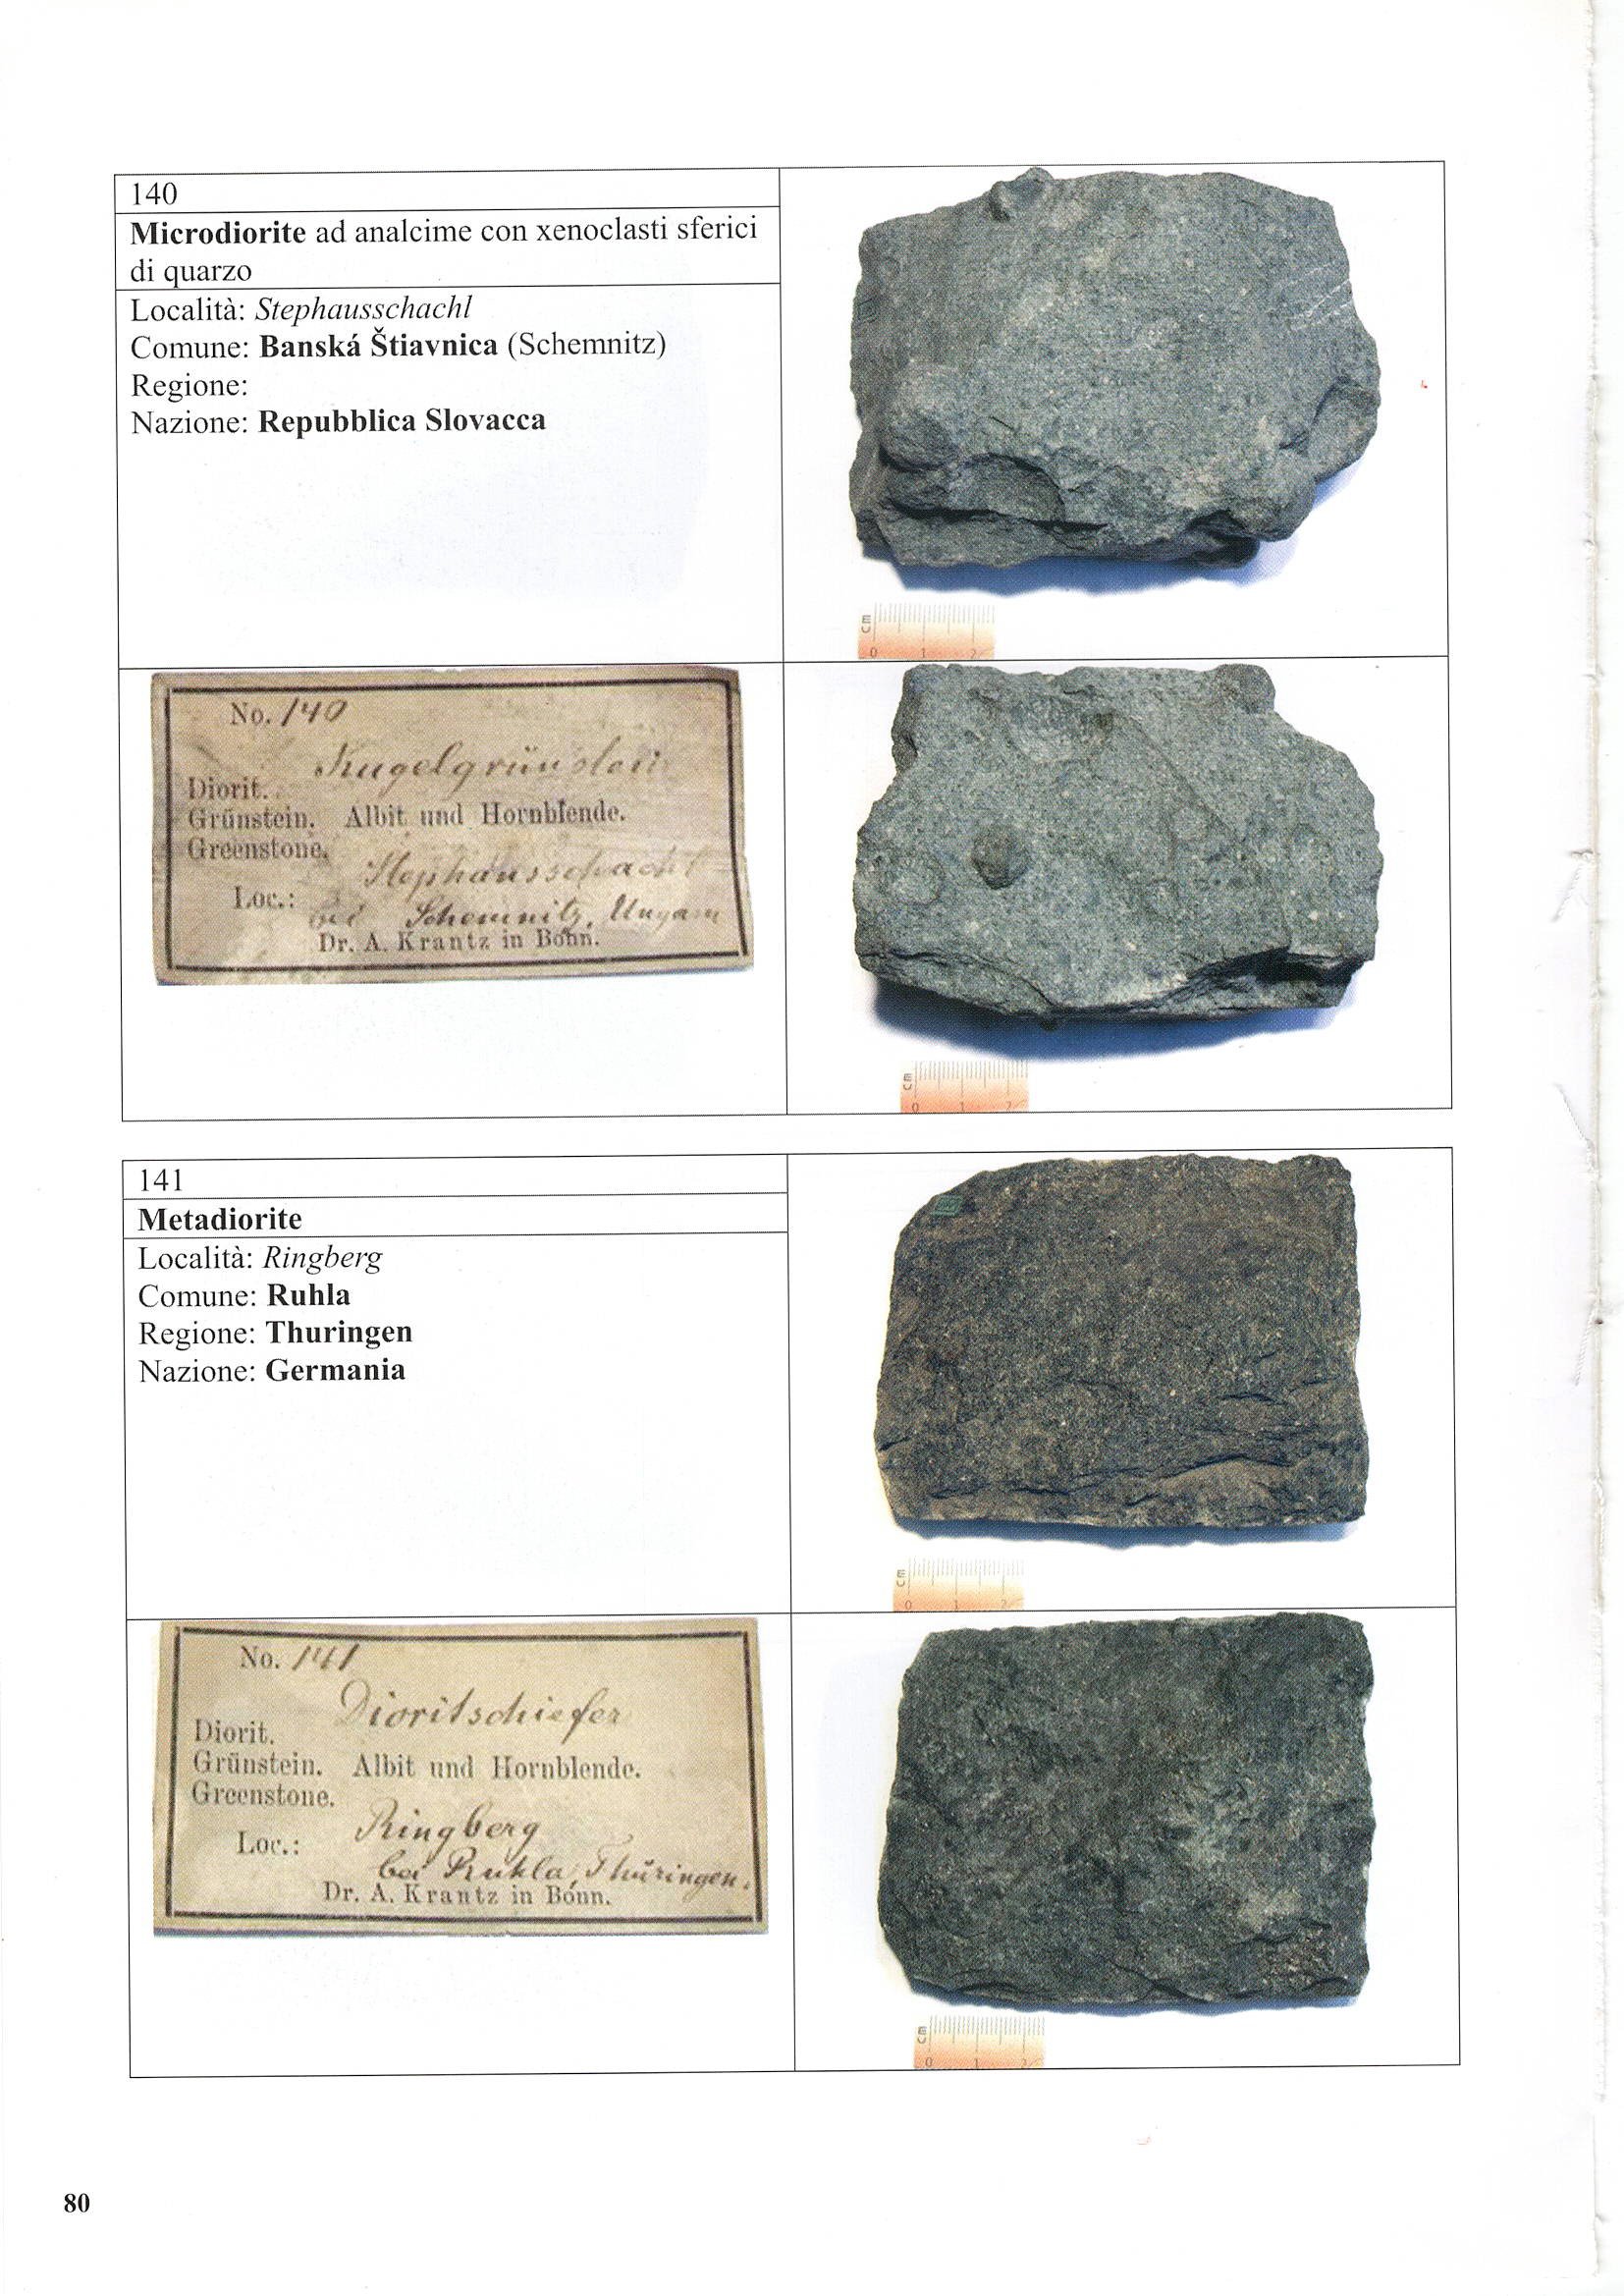 140
Microdiorite ad analcime con xenoclasti sferici
di quarzo
Località: Stephausschachl
Comune: Banská Štiavnica (Schemnitz)
Regione:
Nazione: Repubblica Slovacca
cm
0 1 2
No. 140
Diorit.
Grünstein. Albit und Hornblende.
Greenstone.
Loc.:
bei Schemnitz, Ungarn
Dr. A. Krantz in Bonn.
cm
0 1 2
141
Metadiorite
Località: Ringberg
Comune: Ruhla
Regione: Thuringen
Nazione: Germania
cm
0 1 2
No. 141
Dioritschiefer
Diorit.
Grünstein. Albit und Hornblende.
Greenstone.
Loc.: Ringberg
bei Ruhla, Thüringen.
Dr. A. Krantz in Bonn.
cm
0 1 2
80